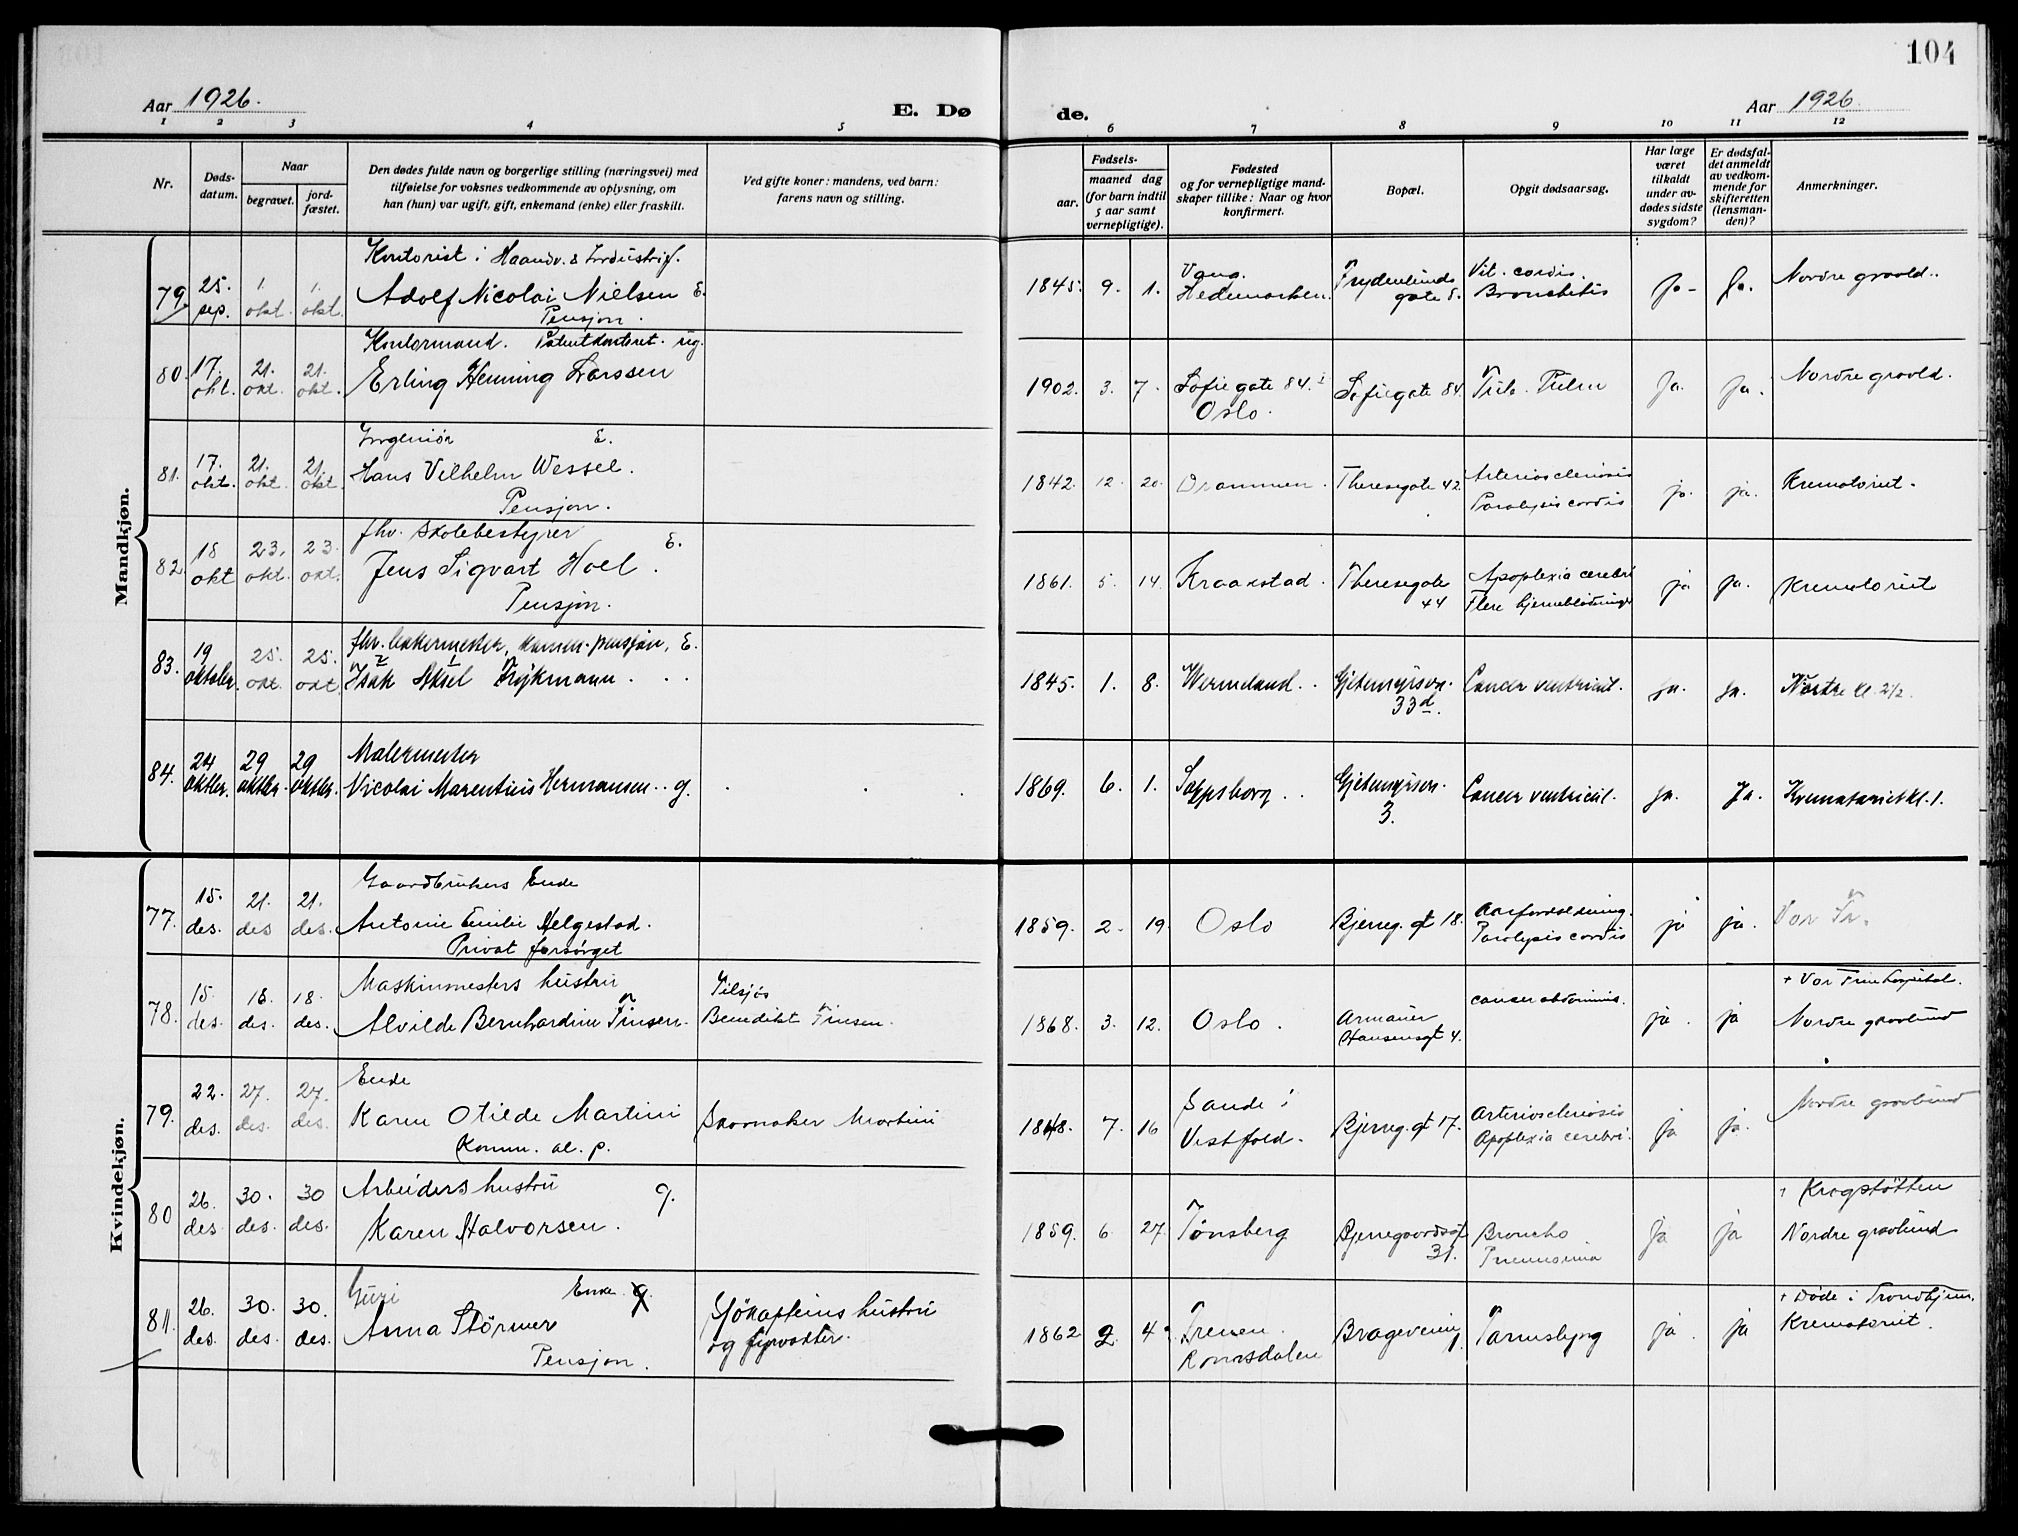 104
Aar 1926.
E. Dø
de.
Aar 1926.
1 2 3 4 5 6 7 8 9 10 11 12
Nr.
Døds-
datum.
Naar
begravet.
jord-
fæstet.
Den dødes fulde navn og borgerlige stilling (næringsvei) med
tilføielse for voksnes vedkommende av oplysning, om
han (hun) var ugift, gift, enkemand (enke) eller fraskilt.
Ved gifte koner: mandens, ved barn:
farens navn og stilling.
Fødsels-
aar.
maaned dag
(for barn indtil
5 aar samt
vernepligtige).
Fødested
og for vernepligtige mand-
skaper tillike: Naar og hvor
konfirmert.
Bopæl.
Opgit dødsaarsag.
Har læge
været
tilkaldt
under av-
dødes sidste
sygdom?
Er dødsfal-
det anmeldt
av vedkom-
mende for
skifteretten
(lensman-
den)?
Anmerkninger.
Mandkjøn.
Kontorist i Haandv. & Industrif.
79. 25. sep. 1. okt. 1. okt. Adolf Nicolai Nielsen E.
Pensjon.
1845. 9. 1. Vang. Hedemarken. Frydenlunds gate 5. Vit. cordis. Bronchitis ja - ja. Nordre gravld.
Kontormand. Patentkontoret. ug.
80. 17. okt. 21. okt. 21. okt. Erling Henning Larssen
1902. 3. 7. Sofie gate 84. Oslo. Sofiegate 84. Tub. Pulm ja. ja. Nordre gravld.
Ingeniør E.
81. 17. okt. 21. okt. 21. okt. Hans Vilhelm Wessel.
Pensjon.
1842. 12. 20. Drammen. Theresegate 42. Arteriosclerosis Paralysis cordis ja. ja. Krematoriet.
fhv. skolebestyrer E.
82. 18 okt 23. okt. 23. okt. Jens Sigvart Hoel.
Pensjon.
1861. 5. 14. Kraakstad. Theresegate 44 Apoplexia cerebri Flere hjerneblødninger ja ja. Krematoriet
fhv. bakermester, komm. pensjon, E.
83. 19 oktober. 25. okt. 25. okt. Isak Aksel Frykmann. . .
1845. 1. 8. Wermeland. . Gjetemyrsvn. 33d. Cancer ventricul. ja. ja. Nordre kl. 2 1/2.
Malermester
84. 24 oktbr. 29 oktbr. 29 oktbr. Nicolai Marentius Hermansen. . g.
1869. 6. 1. Sarpsborg. . Gjetemyrsvn. 3. Cancer ventricul. ja. Ja. Krematoriet kl. 1.
Kvindekjøn.
Gaardbrukers Enke
77. 15. des. 21. des 21. des. Antonie Emilie Helgestad.
Privat forsørget
1859. 2. 19. Oslo Bjerreg. gt 18. Aareforkalkning. Paralysis cordis ja ja. Vor Fr.
Maskinmesters hustru
78. 15. des. 18. des. 18. des. Alvilde Bernhardine Tinsen. Benedikt Tinsen.
1868. 3. 12. Oslo. Armauer Hansensgt 4. cancer abdominis. ja. ja + Vor Frue hospital. Nordre gravlund
Enke
79. 22. des. 27. des. 27. des. Karen Otilde Martini Skomaker Martini
Komm. al. p.
1848. 7. 16 Sande i Vestfold. Bjerreg. gt 17. Arteriosclerosis Apoplexia cerebri. ja ja. Nordre gravlund
Arbeiders hustru g.
80 26. des 30. des. 30 des. Karen Halvorsen.
1859. 6 27. Tønsberg Bjerregaardsgt 31. Broncho Pneumonia ja ja + Krogstøtten Nordre gravlund
Guri Enke g.
81. 26. des. 30. des. 30. des. Anna Størmer Sjøkapteins hustru og fyrvokter.
Pensjon.
1862 2. 4. Romsdalen Brageveien 1. Tarmslyng ja. ja + Døde i Trondhjem. Krematoriet.